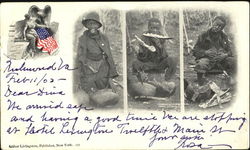 Richmond Va
Feb 11/05
Dear Dina
We arrived safe
and having a good time. We are stopping
at Hotel Lexington Twelfth & Main St
Your sister
Arthur Livingston, Publisher, New York.